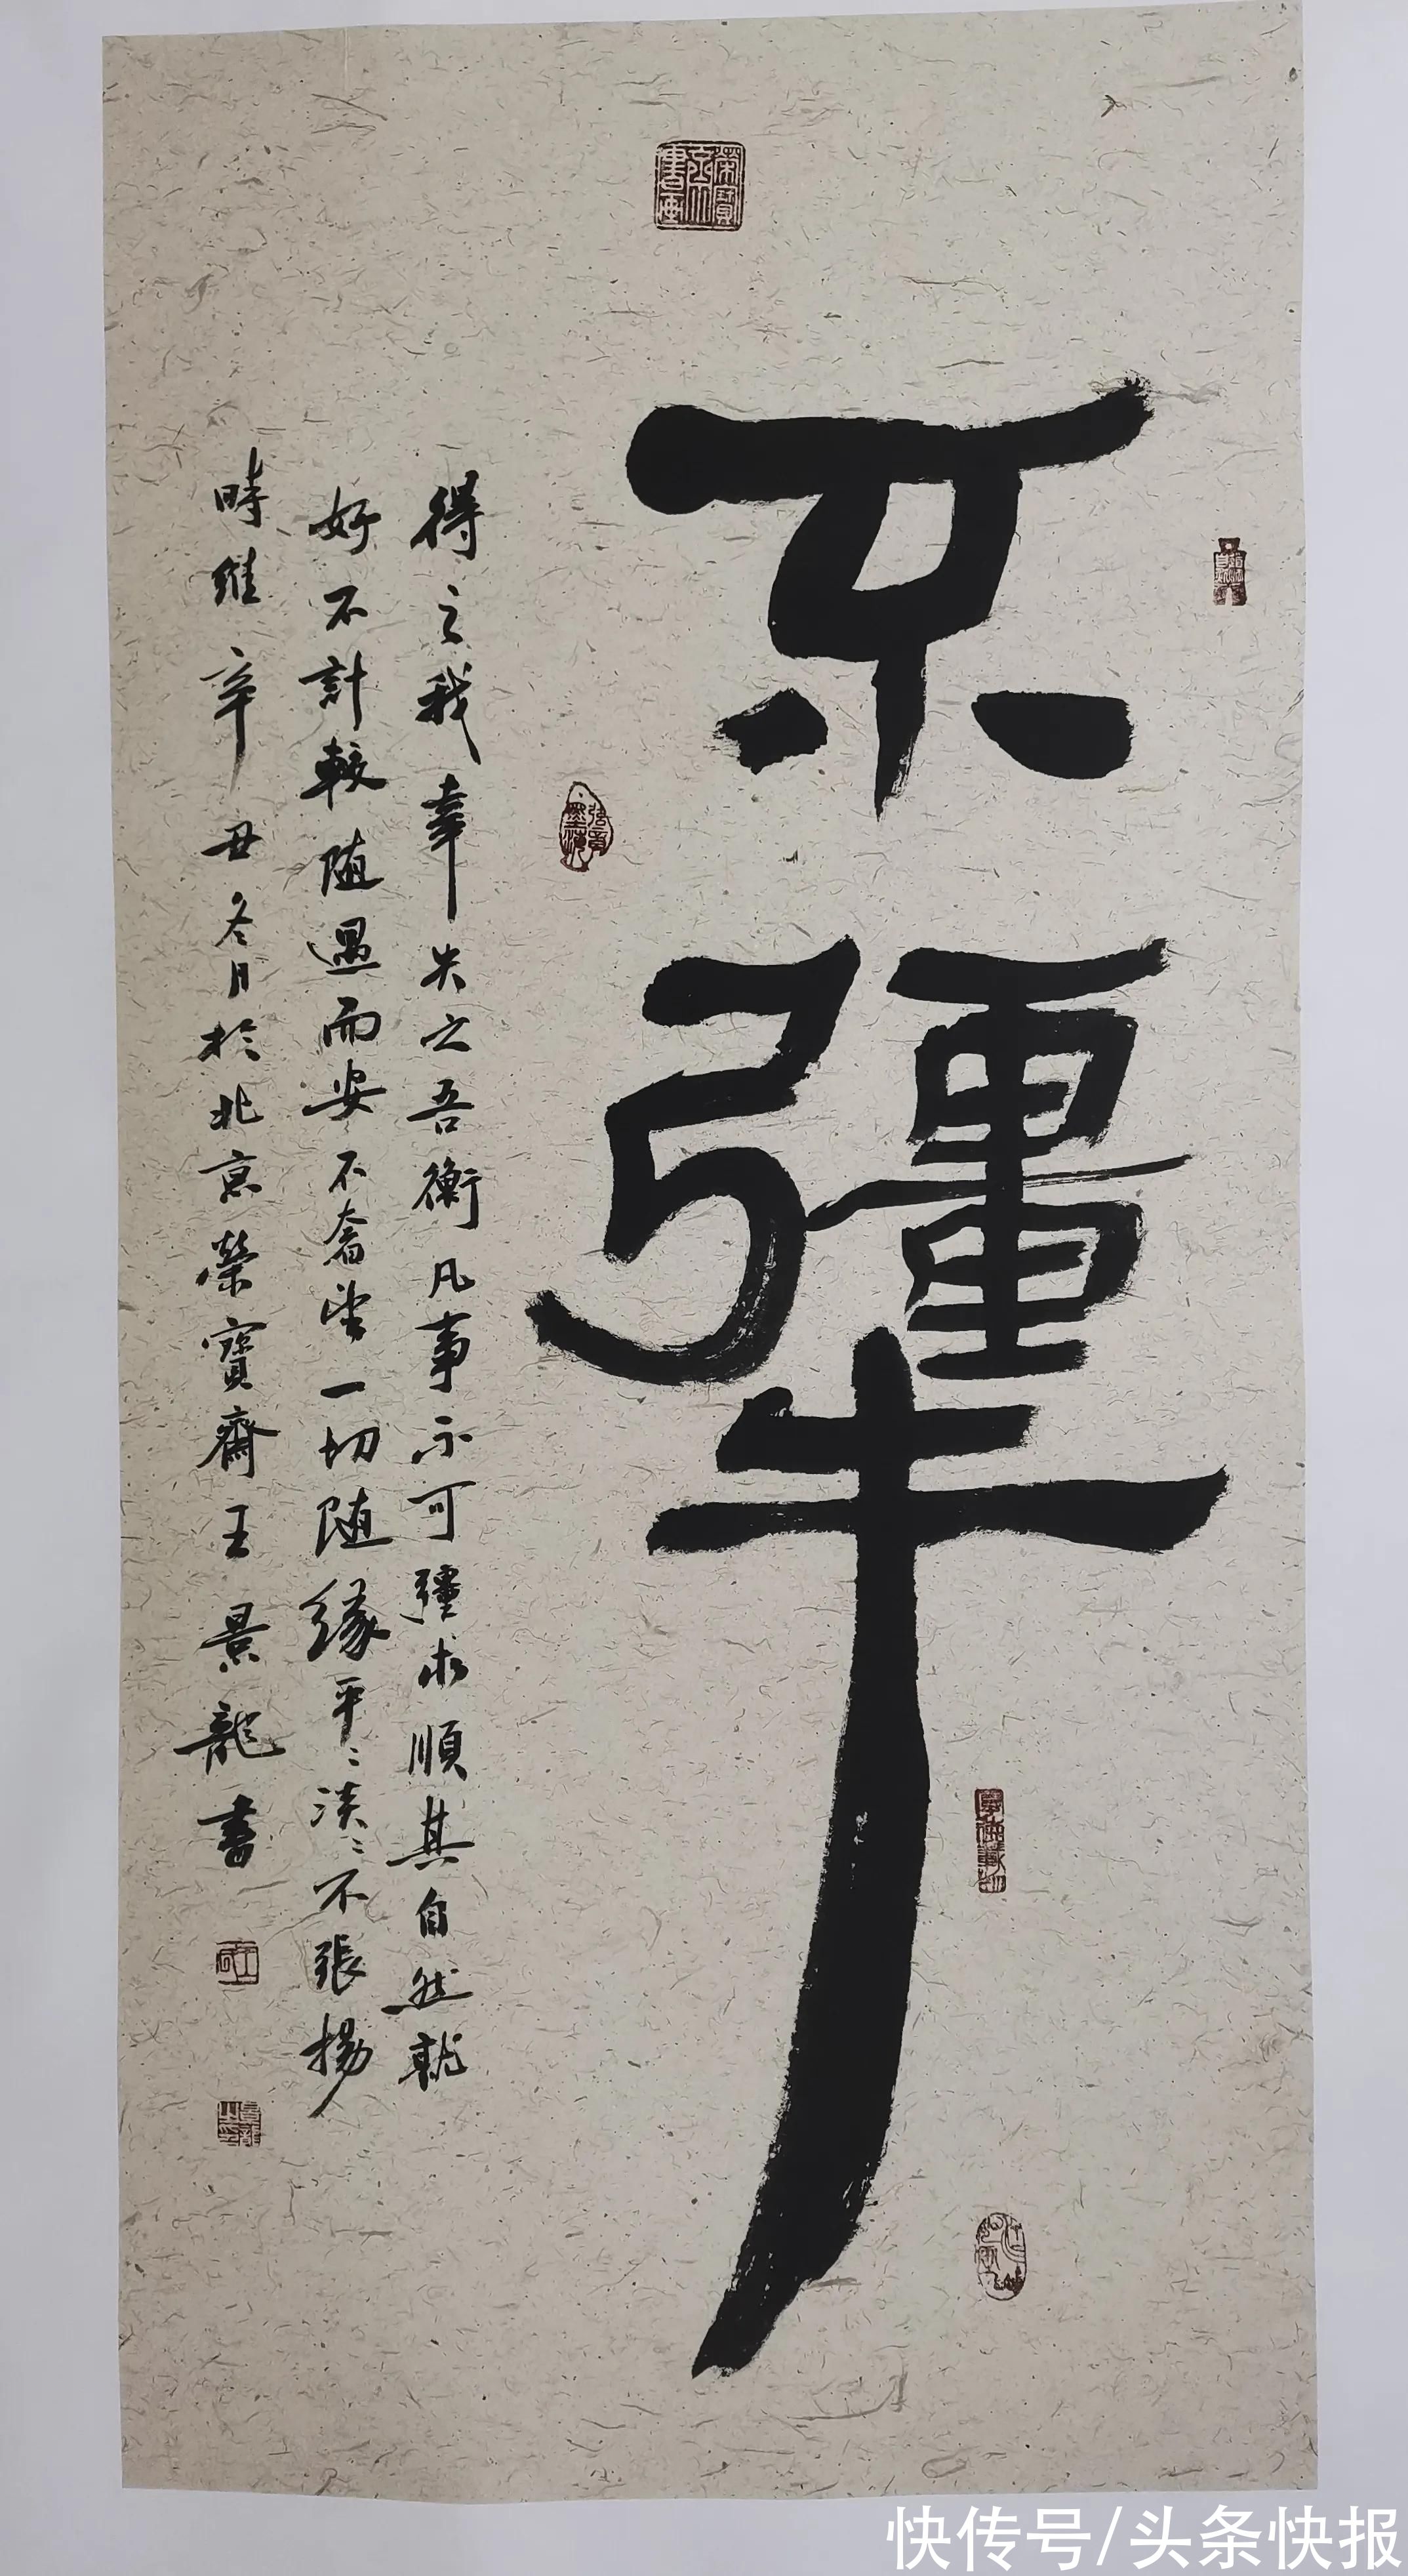 不彊
得之我幸失之吾衡凡事不可彊求順其自然就
好不計較随遇而安不奢望一切随緣平〻淡〻不張揚
時維辛丑冬月於北京榮寳齋王景龍書
快传号/头条快报